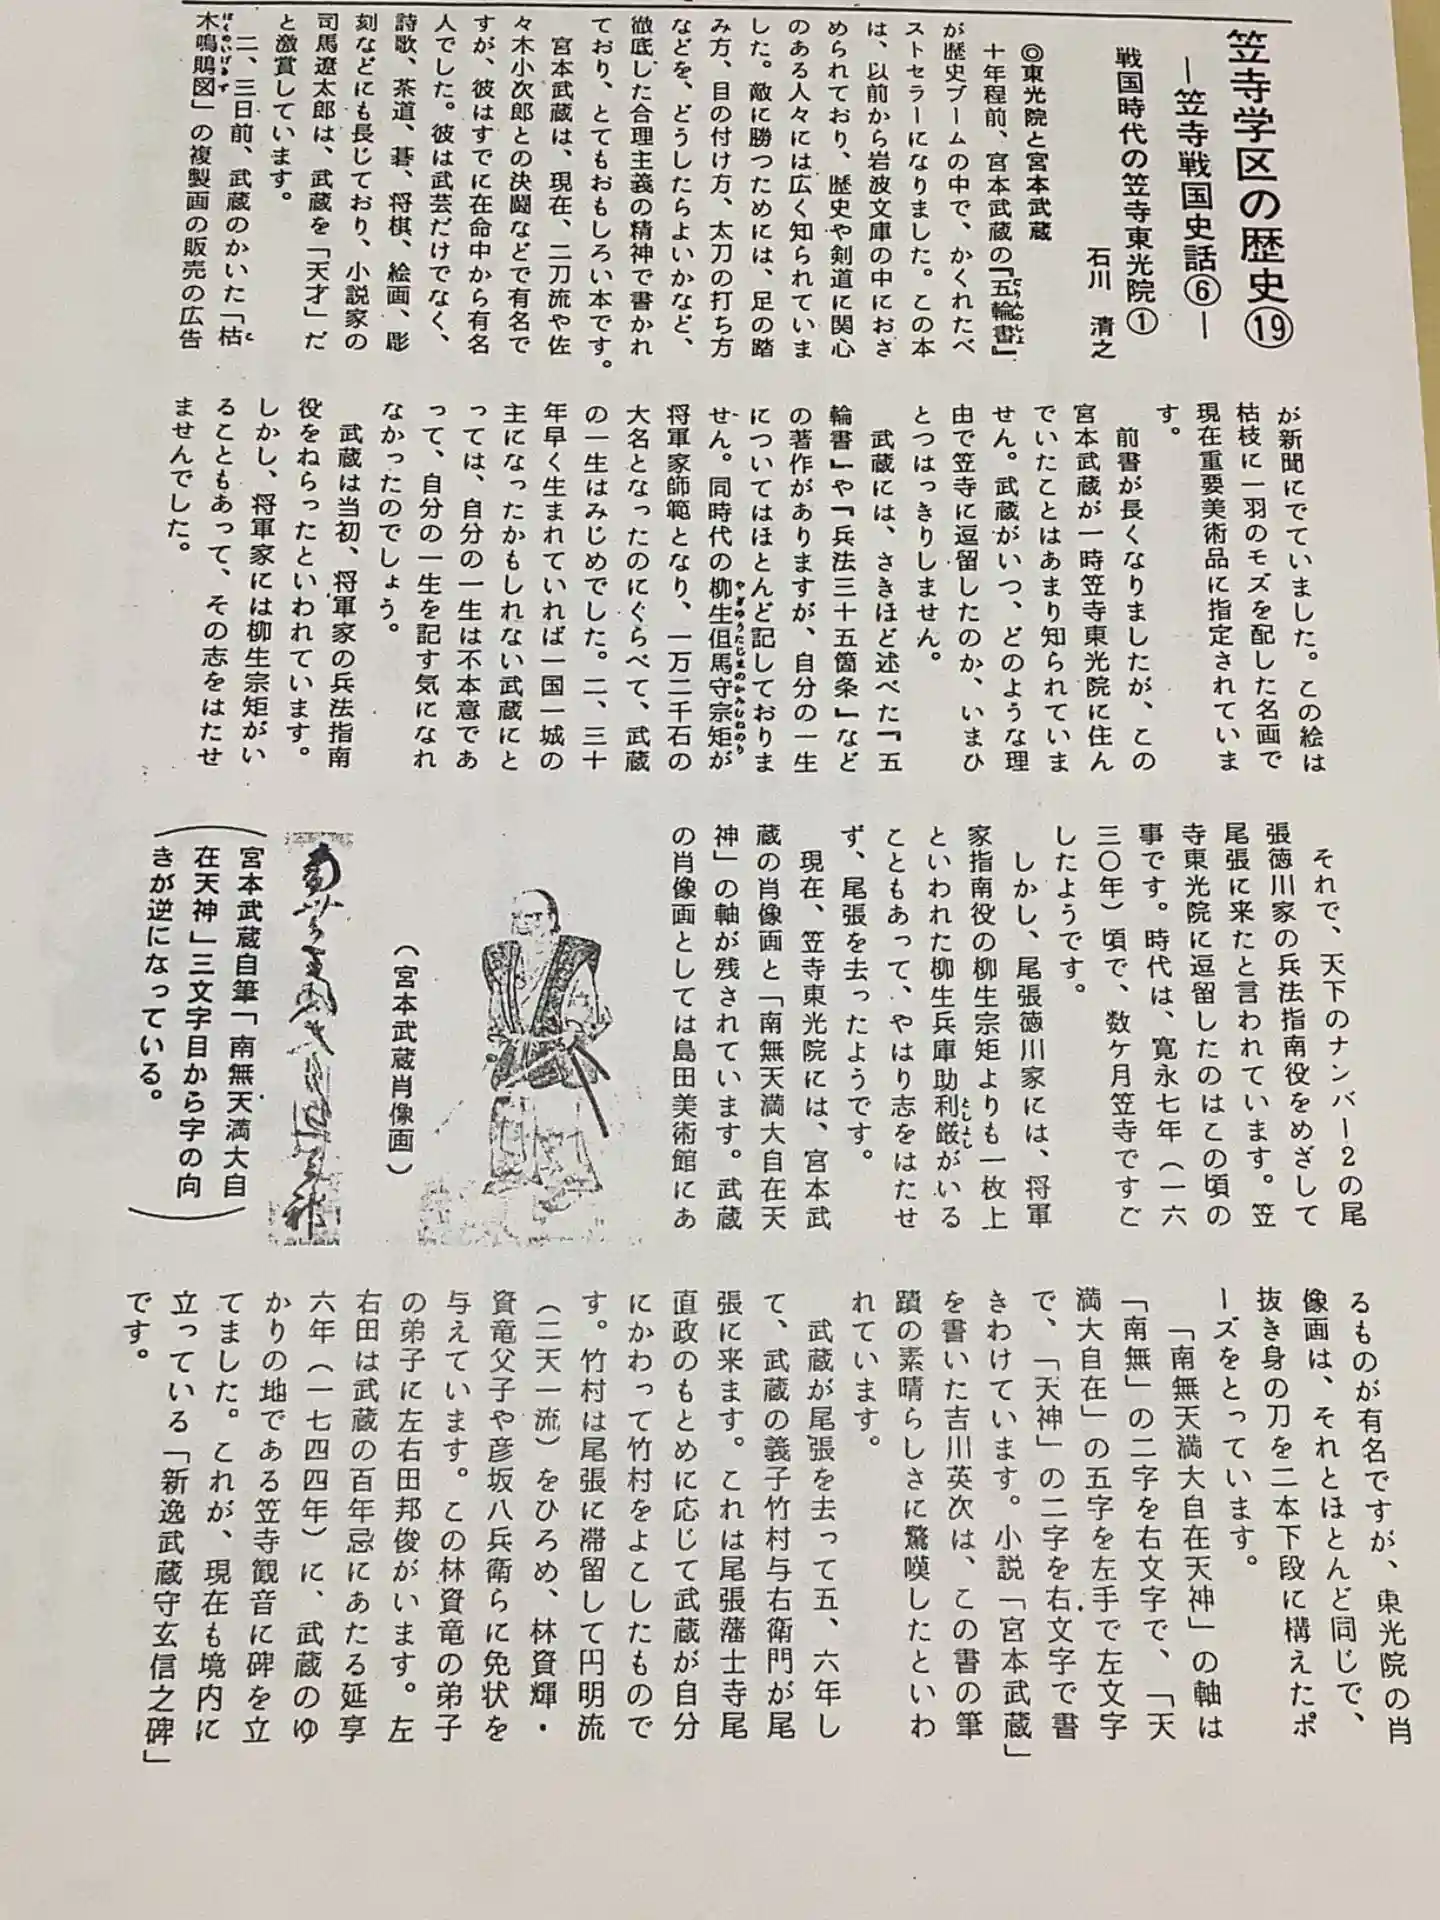 笠寺学区の歴史⑲
―笠寺戦国史話⑥―
戦国時代の笠寺東光院①
石川 清之
◎東光院と宮本武蔵
十年程前、宮本武蔵の『五輪書』
が歴史ブームの中で、かくれたべ
ストセラーになりました。この本
は、以前から岩波文庫の中におさ
められており、歴史や剣道に関心
のある人々には広く知られていま
した。敵に勝つためには、足の踏
み方、目の付け方、太刀の打ち方
などを、どうしたらよいかなど、
徹底した合理主義の精神で書かれ
ており、とてもおもしろい本です。
宮本武蔵は、現在、二刀流や佐
々木小次郎との決闘などで有名で
すが、彼はすでに在命中から有名
人でした。彼は武芸だけでなく、
詩歌、茶道、碁、将棋、絵画、彫
刻などにも長じており、小説家の
司馬遼太郎は、武蔵を「天才」だ
と激賞しています。
二、三日前、武蔵のかいた「枯
木鳴鵙図」の複製画の販売の広告
が新聞にでていました。この絵は
枯枝に一羽のモズを配した名画で
現在重要美術品に指定されていま
す。
前書が長くなりましたが、この
宮本武蔵が一時笠寺東光院に住ん
でいたことはあまり知られていま
せん。武蔵がいつ、どのような理
由で笠寺に逗留したのか、いまひ
とつはっきりしません。
武蔵には、さきほど述べた『五
輪書』や『兵法三十五箇条』など
の著作がありますが、自分の一生
についてはほとんど記しておりま
せん。同時代の柳生但馬守宗矩が
将軍家師範となり、一万二千石の
大名となったのにぐらべて、武蔵
の一生はみじめでした。二、三十
年早く生まれていれば一国一城の
主になったかもしれない武蔵にと
っては、自分の一生は不本意であ
って、自分の一生を記す気になれ
なかったのでしょう。
武蔵は当初、将軍家の兵法指南
役をねらったといわれています。
しかし、将軍家には柳生宗矩がい
ることもあって、その志をはたせ
ませんでした。
それで、天下のナンバー2の尾
張徳川家の兵法指南役をめざして
尾張に来たと言われています。笠
寺東光院に逗留したのはこの頃の
事です。時代は、寛永七年（一六
三〇年）頃で、数ケ月笠寺ですご
したようです。
しかし、尾張徳川家には、将軍
家指南役の柳生宗矩よりも一枚上
といわれた柳生兵庫助利厳がいる
こともあって、やはり志をはたせ
ず、尾張を去ったようです。
現在、笠寺東光院には、宮本武
蔵の肖像画と「南無天満大自在天
神」の軸が残されています。武蔵
の肖像画としては島田美術館にあ
（宮本武蔵肖像画）
（宮本武蔵自筆「南無天満大自
在天神」三文字目から字の向
きが逆になっている。）
るものが有名ですが、東光院の肖
像画は、それとほとんど同じで、
抜き身の刀を二本下段に構えたポ
ーズをとっています。
「南無天満大自在天神」の軸は
「南無」の二字を右文字で、「天
満大自在」の五字を左手で左文字
で、「天神」の二字を右文字で書
きわけています。小説「宮本武蔵」
を書いた吉川英次は、この書の筆
蹟の素晴らしさに驚嘆したといわ
れています。
武蔵が尾張を去って五、六年し
て、武蔵の義子竹村与右衛門が尾
張に来ます。これは尾張藩士寺尾
直政のもとめに応じて武蔵が自分
にかわって竹村をよこしたもので
す。竹村は尾張に滞留して円明流
（二天一流）をひろめ、林資輝・
資竜父子や彦坂八兵衛らに免状を
与えています。この林資竜の弟子
の弟子に左右田邦俊がいます。左
右田は武蔵の百年忌にあたる延享
六年（一七四四年）に、武蔵のゆ
かりの地である笠寺観音に碑を立
てました。これが、現在も境内に
立っている「新逸武蔵守玄信之碑」
です。